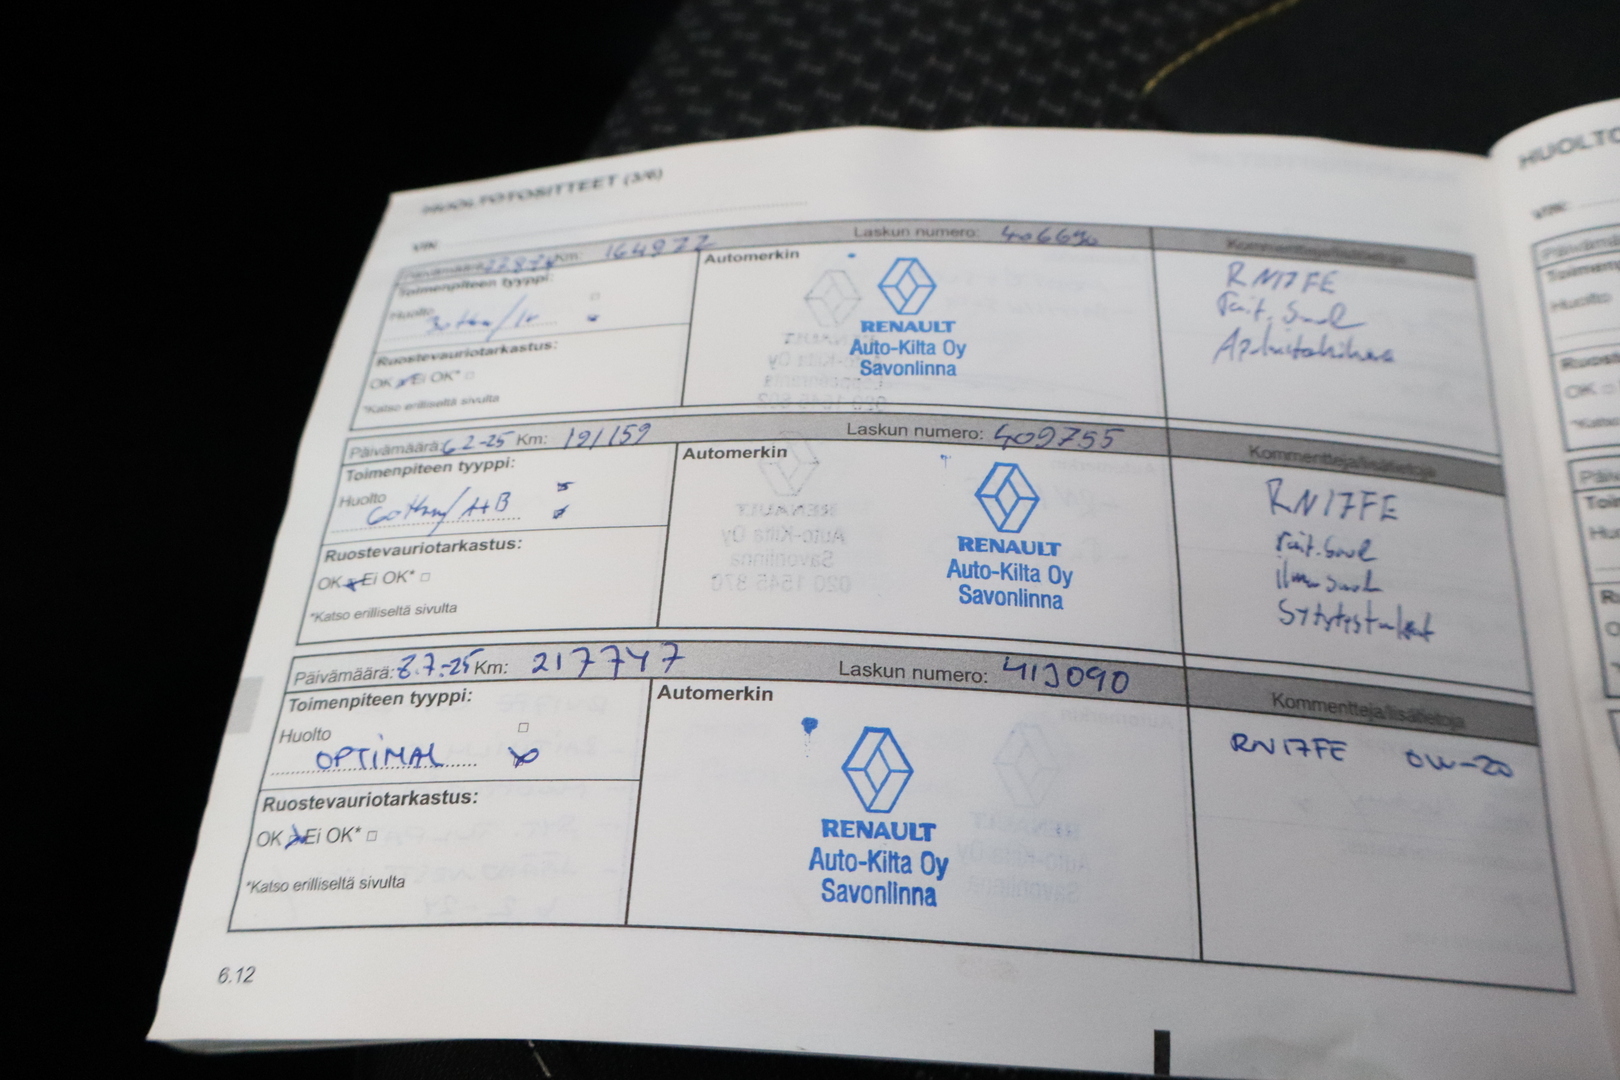 HUOLTOTOSITTEET (3/6)
HUOLTO
VIN:
VIN:
Päivämäärä: 27.8.24 Km: 164922 Laskun numero: 406690 Kommentteja/lisätietoja
Toimenpiteen tyyppi:
Huolto
Ruostevauriotarkastus:
OK Ei OK* □
*Katso erilliseltä sivulta
Automerkin
RENAULT
Auto-Kilta Oy
Savonlinna
RN17FE
Päivämäärä: 6.2-25 Km: 191159 Laskun numero: 409755 Kommentteja/lisätietoja
Toimenpiteen tyyppi:
Huolto
60tkm/A+B
Ruostevauriotarkastus:
OK Ei OK* □
*Katso erilliseltä sivulta
Automerkin
RENAULT
Auto-Kilta Oy
Savonlinna
RN17FE
Päivämäärä: 8.7.-25 Km: 217747 Laskun numero: 413090 Kommentteja/lisätietoja
Toimenpiteen tyyppi:
Huolto □
OPTIMAL
Ruostevauriotarkastus:
OK Ei OK* □
*Katso erilliseltä sivulta
Automerkin
RENAULT
Auto-Kilta Oy
Savonlinna
RN17FE 0W-20
6.12